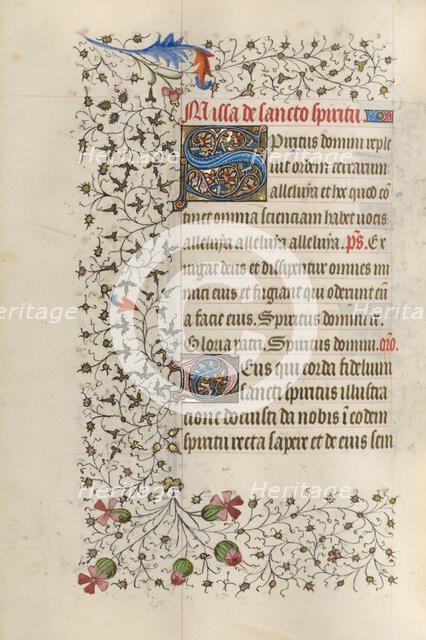 Missa de sancto spiritu.
Spiritus domini reple
uit orbem terrarum
alleluya et hoc quod cō
tinet omnia scienciam habet uocis
alleluya alleluya alleluya. p̄s. Ex
surgat deus et dissipentur omnes ini
mici eius et fugiant qui oderunt eū
a facie eius. Spiritus domini ꝛc̄.
Gloria patri. Spiritus domini. orō.
Deus qui corda fidelium
sancti spiritus illustra
tione docuisti da nobis ī eodem
spiritu recta sapere et de eius sem
Heritage
Heritage
Heritage
Heritage
Heritage
Heritage
Heritage